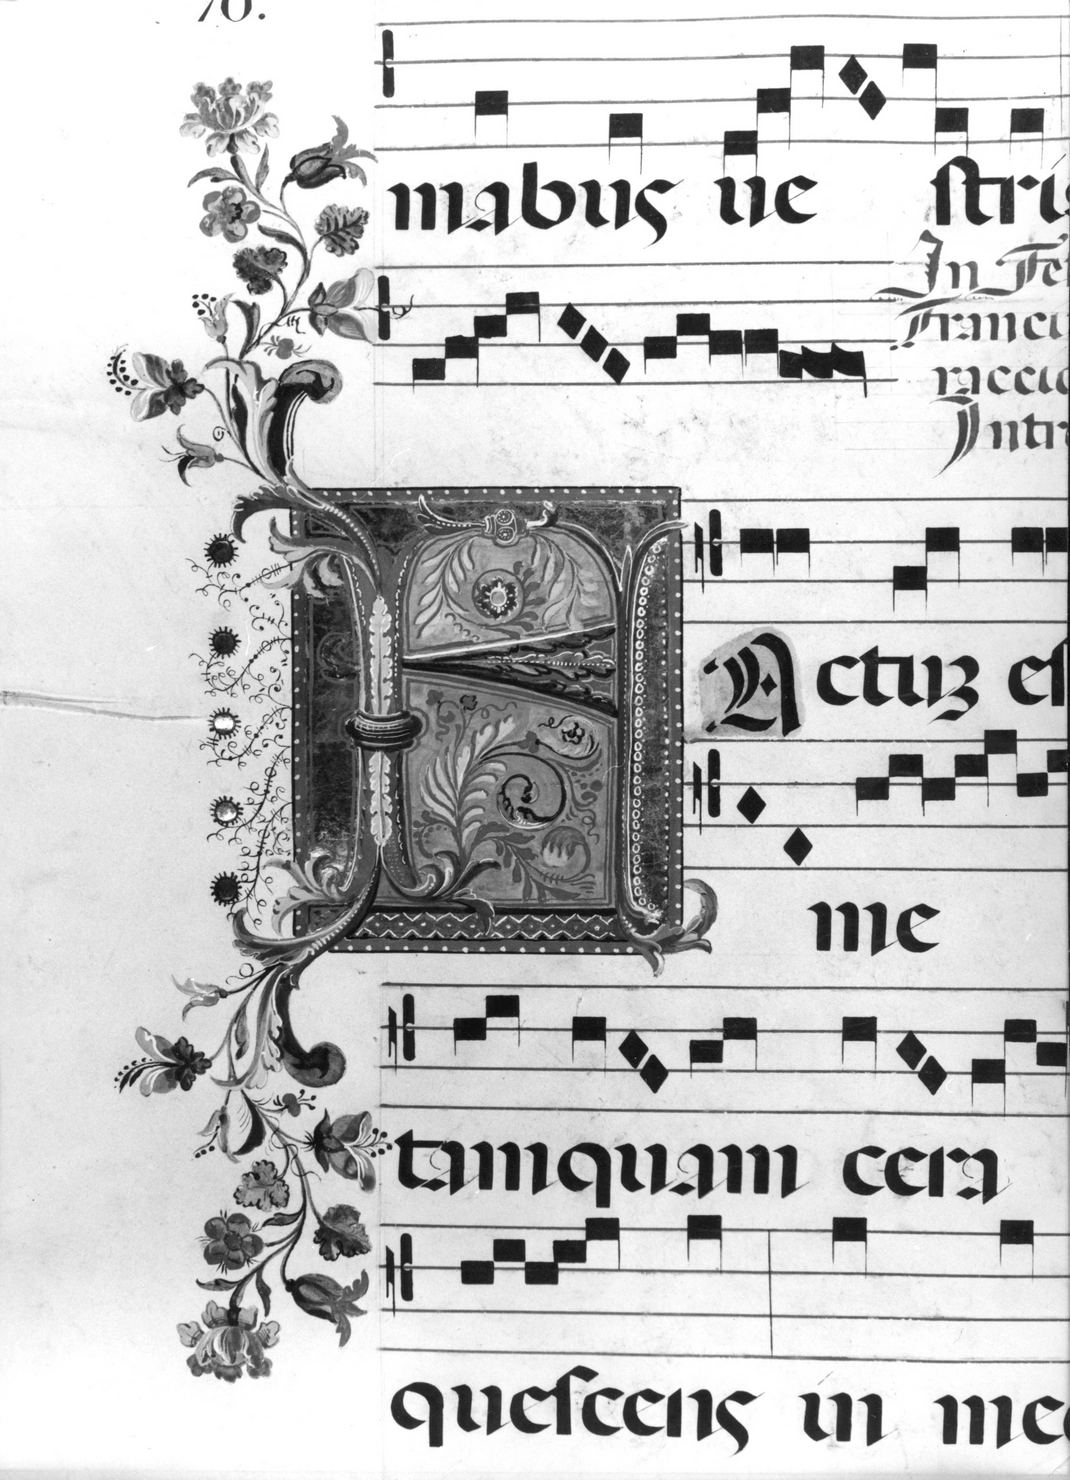 mabus ue ſtris
In Fe
Franci
raccio
Intr
F
Actuz eſ
me
tamquam cera
queſcens in me